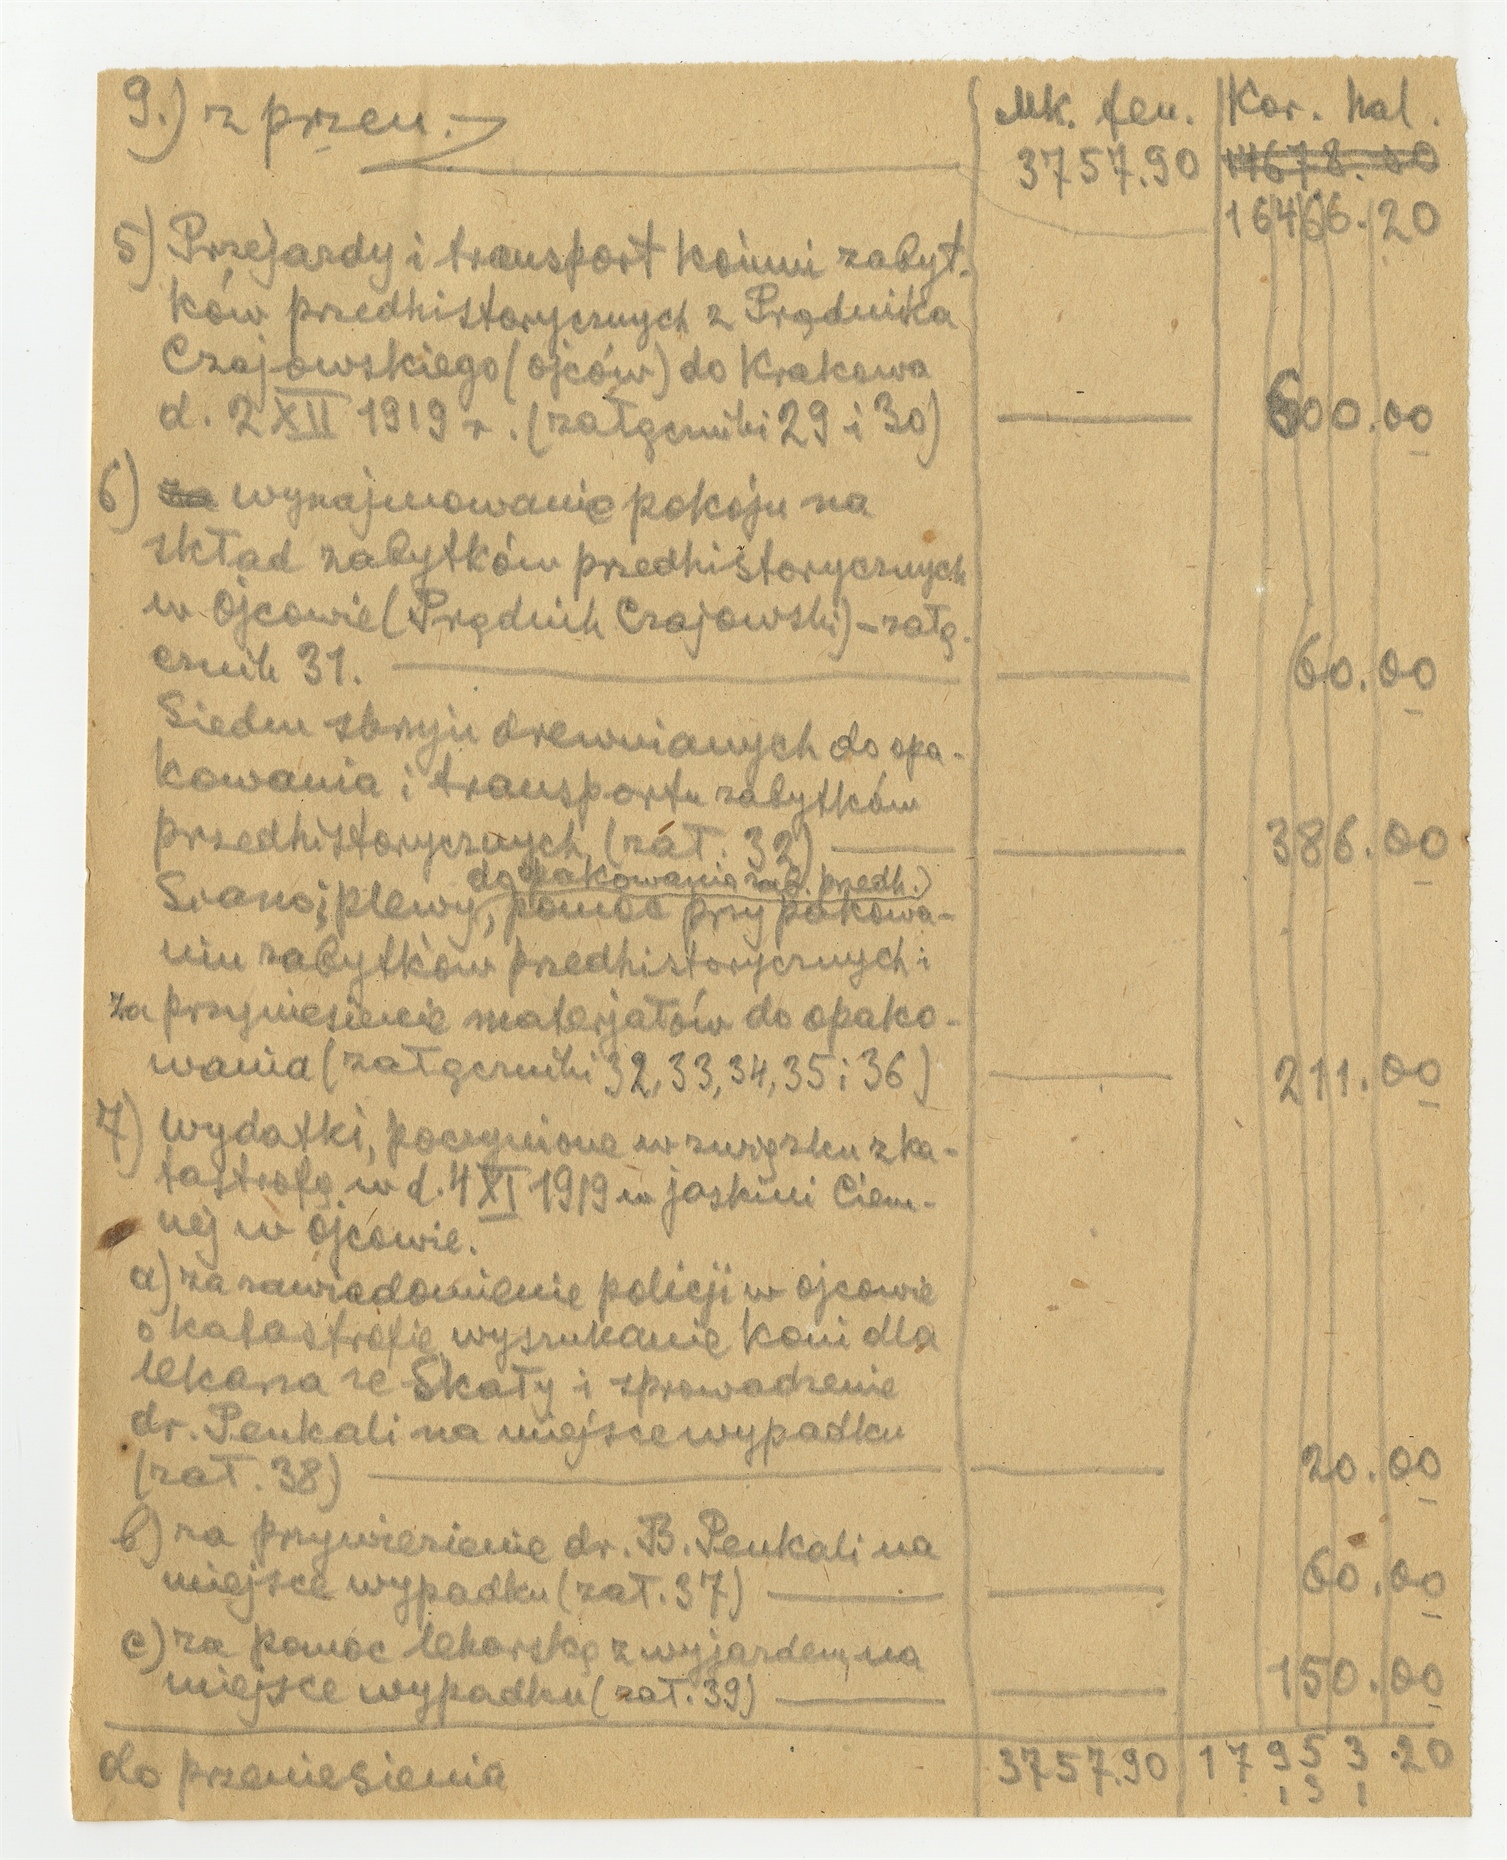 9.) z przen. Mk. fen. Kor. hal.
3757.90 14678.00
16466.20
5) Przejazdy i transport końmi zabyt-
ków przedhistorycznych z Prądnika
Czajowskiego (Ojców) do Krakowa
d. 2 XII 1919 r. (załączniki 29 i 30) 600.00
6) za wynajmowanie pokoju na
skład zabytków przedhistorycznych
w Ojcowie (Prądnik Czajowski) - załą-
cznik 31. 60.00
Siedm skrzyń drewnianych do opa-
kowania i transportu zabytków
przedhistorycznych (zał. 32) 386.00
do opakowania zab. przedh.)
Siano i plewy, pomoc przy pakowa-
niu zabytków przedhistorycznych i
za przyniesienie materjałów do opako-
wania (załączniki 32, 33, 34, 35 i 36) 211.00
7) Wydatki, poczynione w związku z ka-
tastrofą w d. 4 XI 1919 w jaskini Ciem-
nej w Ojcowie.
a) za zawiadomienie policji w Ojcowie
o katastrofie, wyszukanie koni dla
lekarza ze Skały i sprowadzenie
dr. Penkali na miejsce wypadku
(zał. 38) 20.00
b) za przywiezienie dr. B. Penkali na
miejsce wypadku (zał. 37) 60.00
c) za pomoc lekarską z wyjazdem na
miejsce wypadku (zał. 39) 150.00
do przeniesienia 3757.90 17953.20
1 3 1